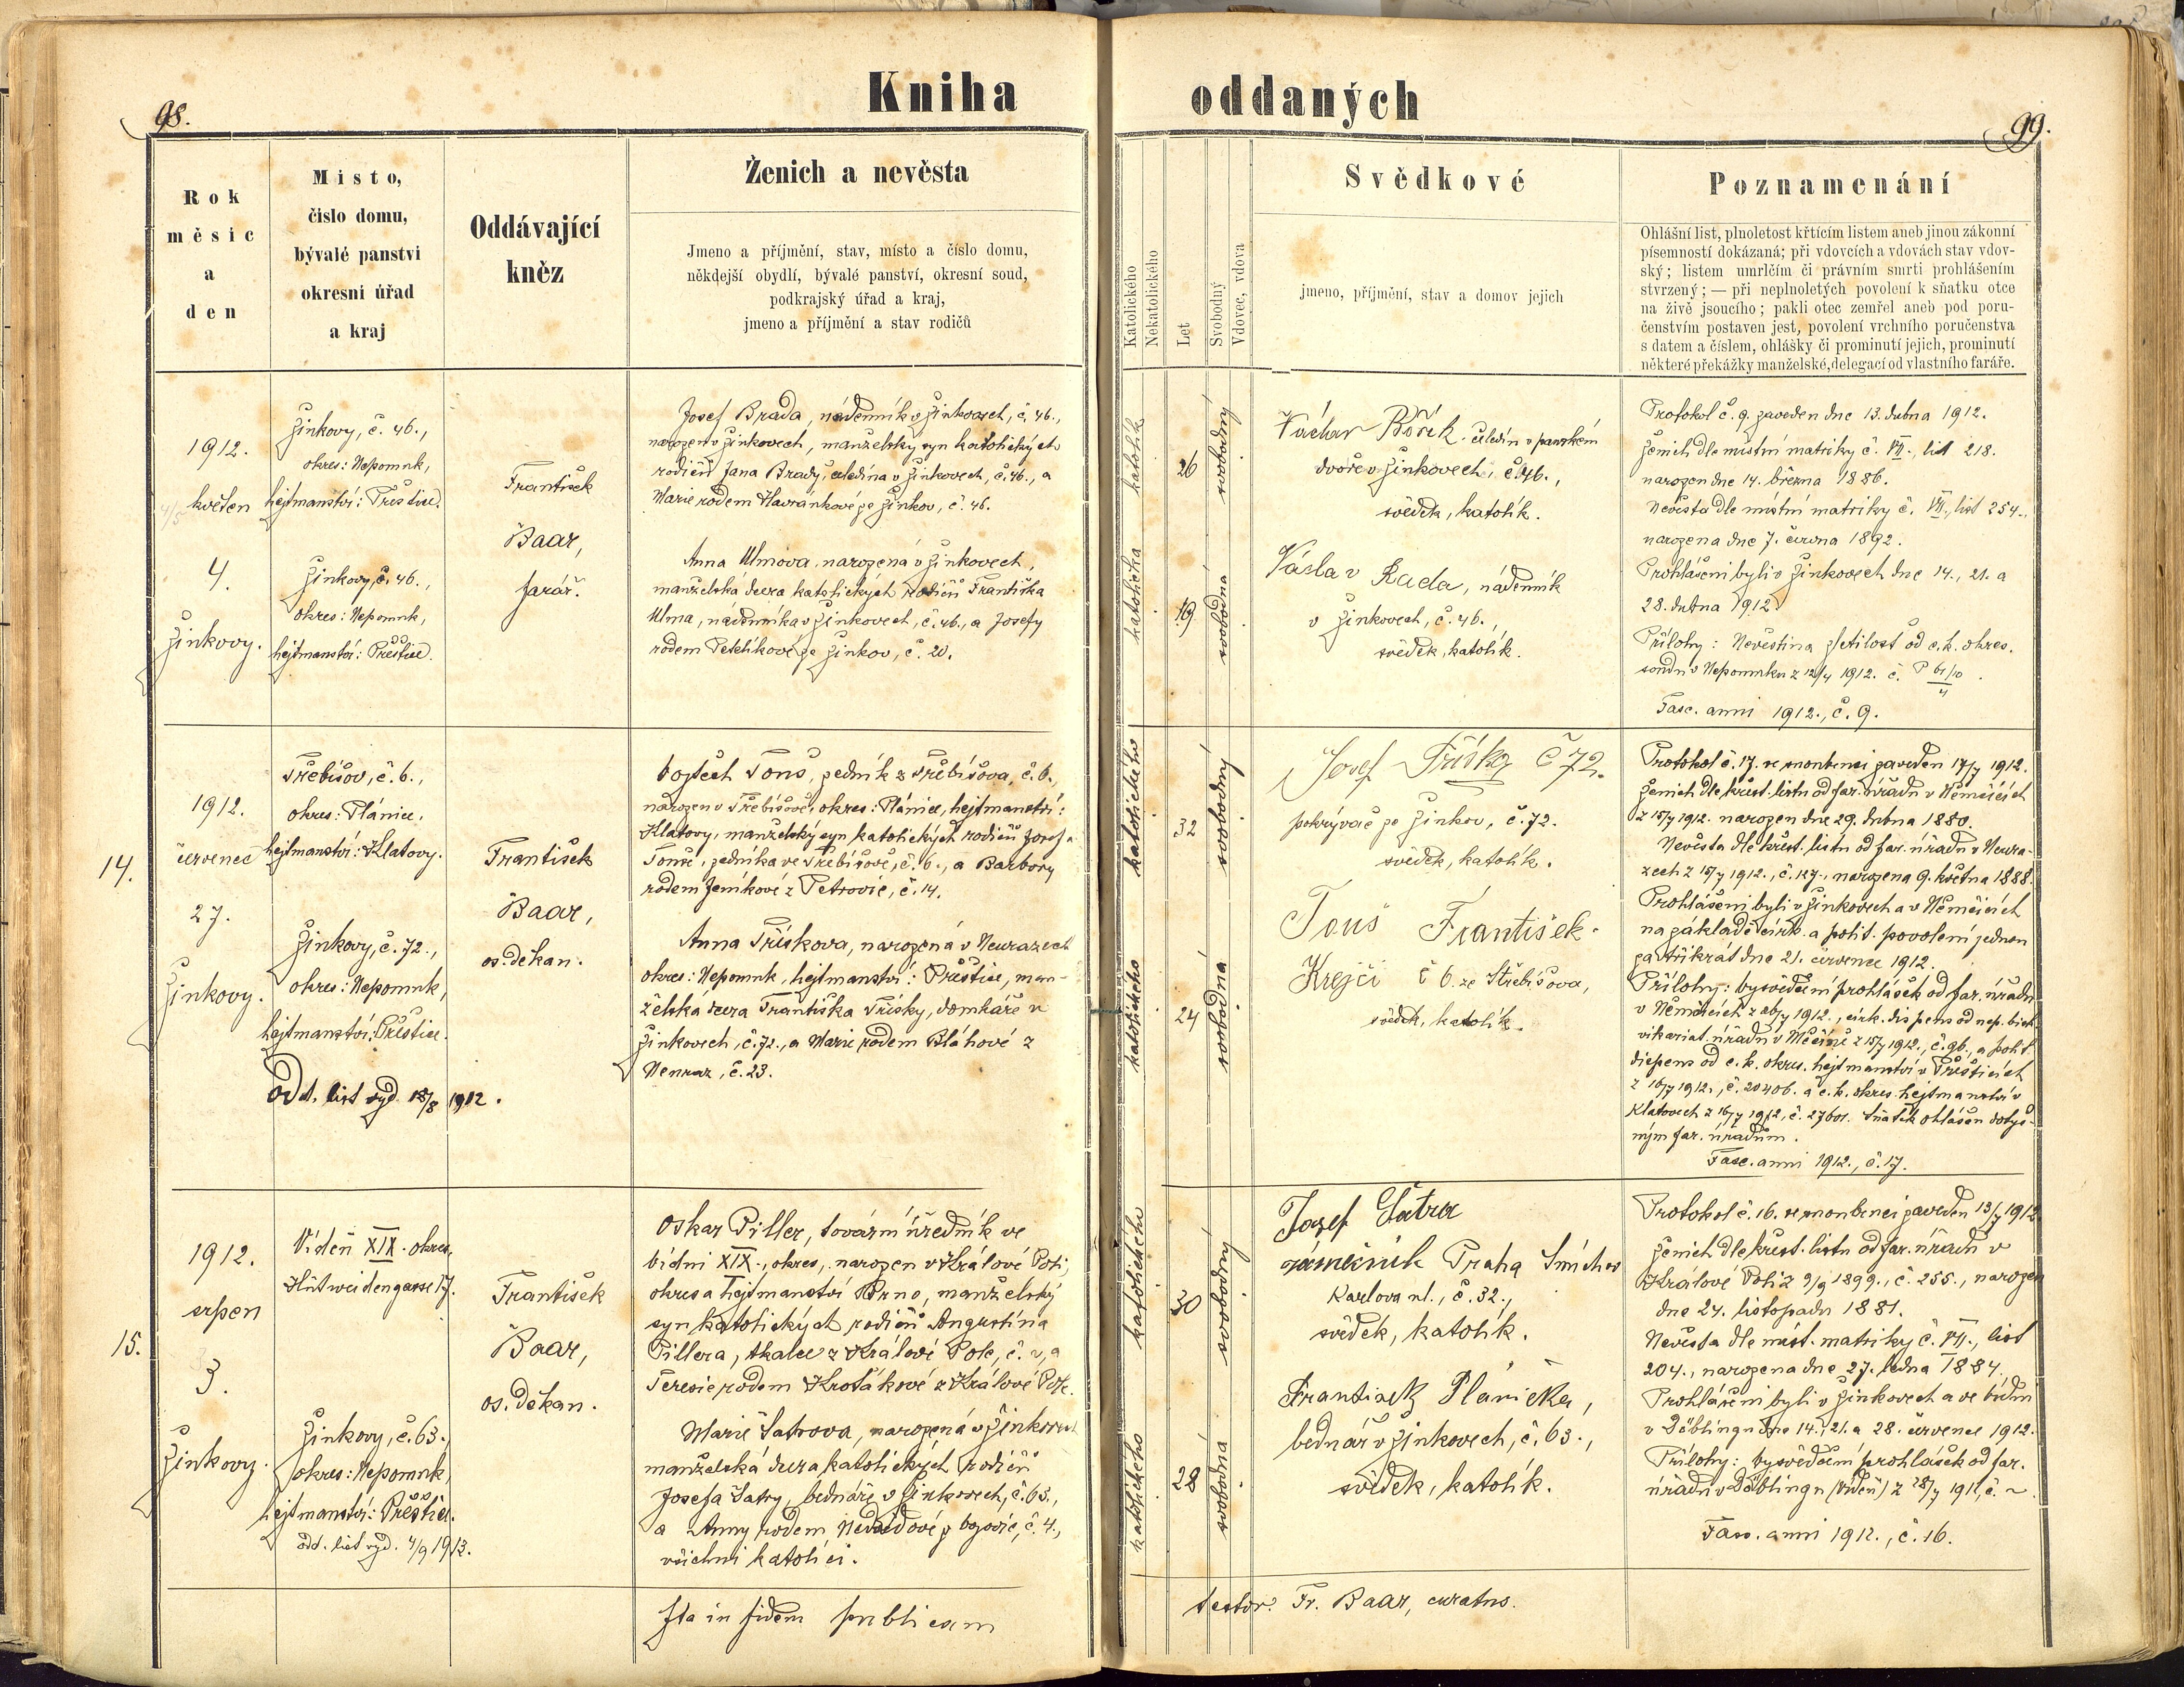 98.
Kniha oddaných
99.
Rok
měsíc
a
den
Místo,
číslo domu,
bývalé panství
okresní úřad
a kraj
Oddávající
kněz
Ženich a nevěsta
Jmeno a příjmění, stav, místo a číslo domu,
někdejší obydlí, bývalé panství, okresní soud,
podkrajský úřad a kraj,
jmeno a příjmění a stav rodičů
Katolického
Nekatolického
Let
Svobodný
Vdovec, vdova
Svědkové
jmeno, příjmění, stav a domov jejich
Poznamenání
Ohlášní list, plnoletost křticím listem aneb jinou zákonní
písemností dokázaná; při vdovcích a vdovách stav vdov-
ský; listem umrlčím či právním smrti prohlášením
stvrzený; — při neplnoletých povolení k sňatku otce
na živě jsoucího; pakli otec zemřel aneb pod poru-
čenstvím postaven jest, povolení vrchního poručenstva
s datem a číslem, ohlášky či prominutí jejich, prominutí
některé překážky manželské, delegací od vlastního faráře.
1912.
4/5 květen
4.
Žinkovy.
Žinkovy, č. 46.,
okres: Nepomuk,
hejtmanství: Přeštice.
Žinkovy, č. 46.,
okres: Nepomuk,
hejtmanství: Přeštice.
František
Baar,
farář.
Josef Brada, nádenník v Žinkovech, č. 46.,
narozen v Žinkovech, manželský syn katolických
rodičů Jana Brady, čeledína v Žinkovech, č. 46., a
Marie rodem Havránkové ze Žinkov, č. 46.
Anna Ulmova, narozená v Žinkovech,
manželská dcera katolických rodičů Františka
Ulma, nádenníka v Žinkovech, č. 46., a Josefy
rodem Petelíkové ze Žinkov, č. 20.
katolík
26
svobodný
katolička
19
svobodná
Václav Bořík čeledín v panském
dvoře v Žinkovech, č. 46.,
svědek, katolík.
Václav Rada, nádenník
v Žinkovech, č. 46.,
svědek, katolík.
Protokol č. 9. zaveden dne 13. dubna 1912.
Ženich dle místní matriky č. VII., list 218.
narozen dne 14. března 1886.
Nevěsta dle místní matriky č. VII., list 254.,
narozena dne 7. června 1892.
Prohlášeni byli v Žinkovech dne 14., 21. a
28. dubna 1912.
Přílohy: Nevěstina zletilost od c. k. okres.
soudu v Nepomuku z 12/4 1912. č. P 61/10
4
Fasc. anni 1912., č. 9.
14.
1912.
červenec
27.
Žinkovy.
Třebíšov, č. 6.,
okres: Plánice,
hejtmanství: Klatovy.
Žinkovy, č. 72.,
okres: Nepomuk,
hejtmanství: Přeštice.
odd. list vyd. 18/8 1912.
František
Baar,
os. děkan.
Vojtěch Touš, zedník z Třebíšova, č. 6.,
narozen v Třebíšově, okres: Plánice, hejtmanství:
Klatovy, manželský syn katolických rodičů Josefa
Touše, zedníka ve Třebíšově, č. 6., a Barbory
rodem Jeníkové z Petrovic, č. 14.
Anna Třískova, narozená v Neurazech
okres: Nepomuk, hejtmanství: Přeštice, man-
želská dcera Františka Třísky, domkáře v
Žinkovech, č. 72., a Marie rodem Bláhové z
Neuraz, č. 23.
katolického
32
svobodný
katolického
24
svobodná
Josef Tříska č 72.
pokrývač ze Žinkov, č. 72.
svědek, katolík.
Touš František
Krejčí č 6. ze Střebíšova,
svědek, katolík.
Protokol č. 17. ve snoubenci zaveden 17/7 1912.
Ženich dle křest. listu od far. úřadu v Němčicích
z 15/7 1912. narozen dne 29. dubna 1880.
Nevěsta dle křest. listu od far. úřadu v Neura-
zech z 15/7 1912., č. 127., narozena 9. května 1888.
Prohlášeni byli v Žinkovech a v Němčicích
na základě círk. a polit. povolení jednou
za třikrát dne 21. července 1912.
Přílohy: vysvědčení prohlášek od far. úřadu
v Němčicích z 26/7 1912., círk. dispens od nep. bisk.
vikariat. úřadu v Měčíně z 15/7 1912., č. 96., a polit.
dispens od c. k. okres. hejtmanství v Přešticích
z 16/7 1912., č. 20406. a c. k. okres. hejtmanství v
Klatovech z 16/7 1912, č. 27601. Sňatek ohlášen dotyč-
ným far. úřadům.
Fasc. anni 1912., č. 17.
15.
1912.
srpen
3.
Žinkovy.
Vídeň XIX. okres,
Hutweidengasse 17.
Žinkovy, č. 63.,
okres: Nepomuk,
hejtmanství: Přeštice.
odd. list vyd. 4/9 1912.
František
Baar,
os. děkan.
Oskar Piller, tovární úředník ve
Vídni XIX., okres, narozen v Králové Poli,
okres a hejtmanství Brno, manželský
syn katolických rodičů Augustina
Pillera, tkalce z Králové Pole, č. ~, a
Terezie rodem Kroťákové z Králové Pole.
Marie Šatrova, narozená v Žinkovech
manželská dcera katolických rodičů
Josefa Šatry, bednáře v Žinkovech, č. 63.,
a Anny rodem Nevaidové z Vozovic, č. 4.,
všichni katolíci.
katolického
30
svobodný
katolického
28
svobodná
Josef Šatra
zámečník Praha Smíchov
Karlova ul., č. 32.,
svědek, katolík.
František Plánička,
bednář v Žinkovech, č. 63.,
svědek, katolík.
Protokol č. 16. ve snoubenci zaveden 13/7 1912
Ženich dle křest. listu od far. úřadu v
Králové Poli z 9/9 1899., č. 255., narozen
dne 24. listopadu 1881.
Nevěsta dle míst. matriky č. VII., list
204., narozena dne 27. ledna 1884.
Prohlášeni byli v Žinkovech a ve Vídni
v Döblingu dne 14., 21. a 28. července 1912.
Přílohy: vysvědčení prohlášek od far.
úřadu v Döblingu (Vídeň) z 28/7 1912, č. ~.
Fasc. anni 1912., č. 16.
Ita in fidem publicam testor: Fr. Baar, curatus.